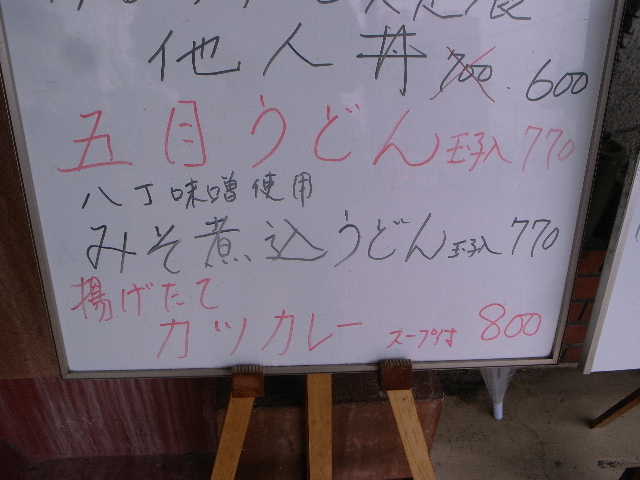 他人丼 700 600
五目うどん 玉子入 770
八丁味噌使用
みそ煮込うどん 玉子入 770
揚げたて
カツカレー スープ付 800